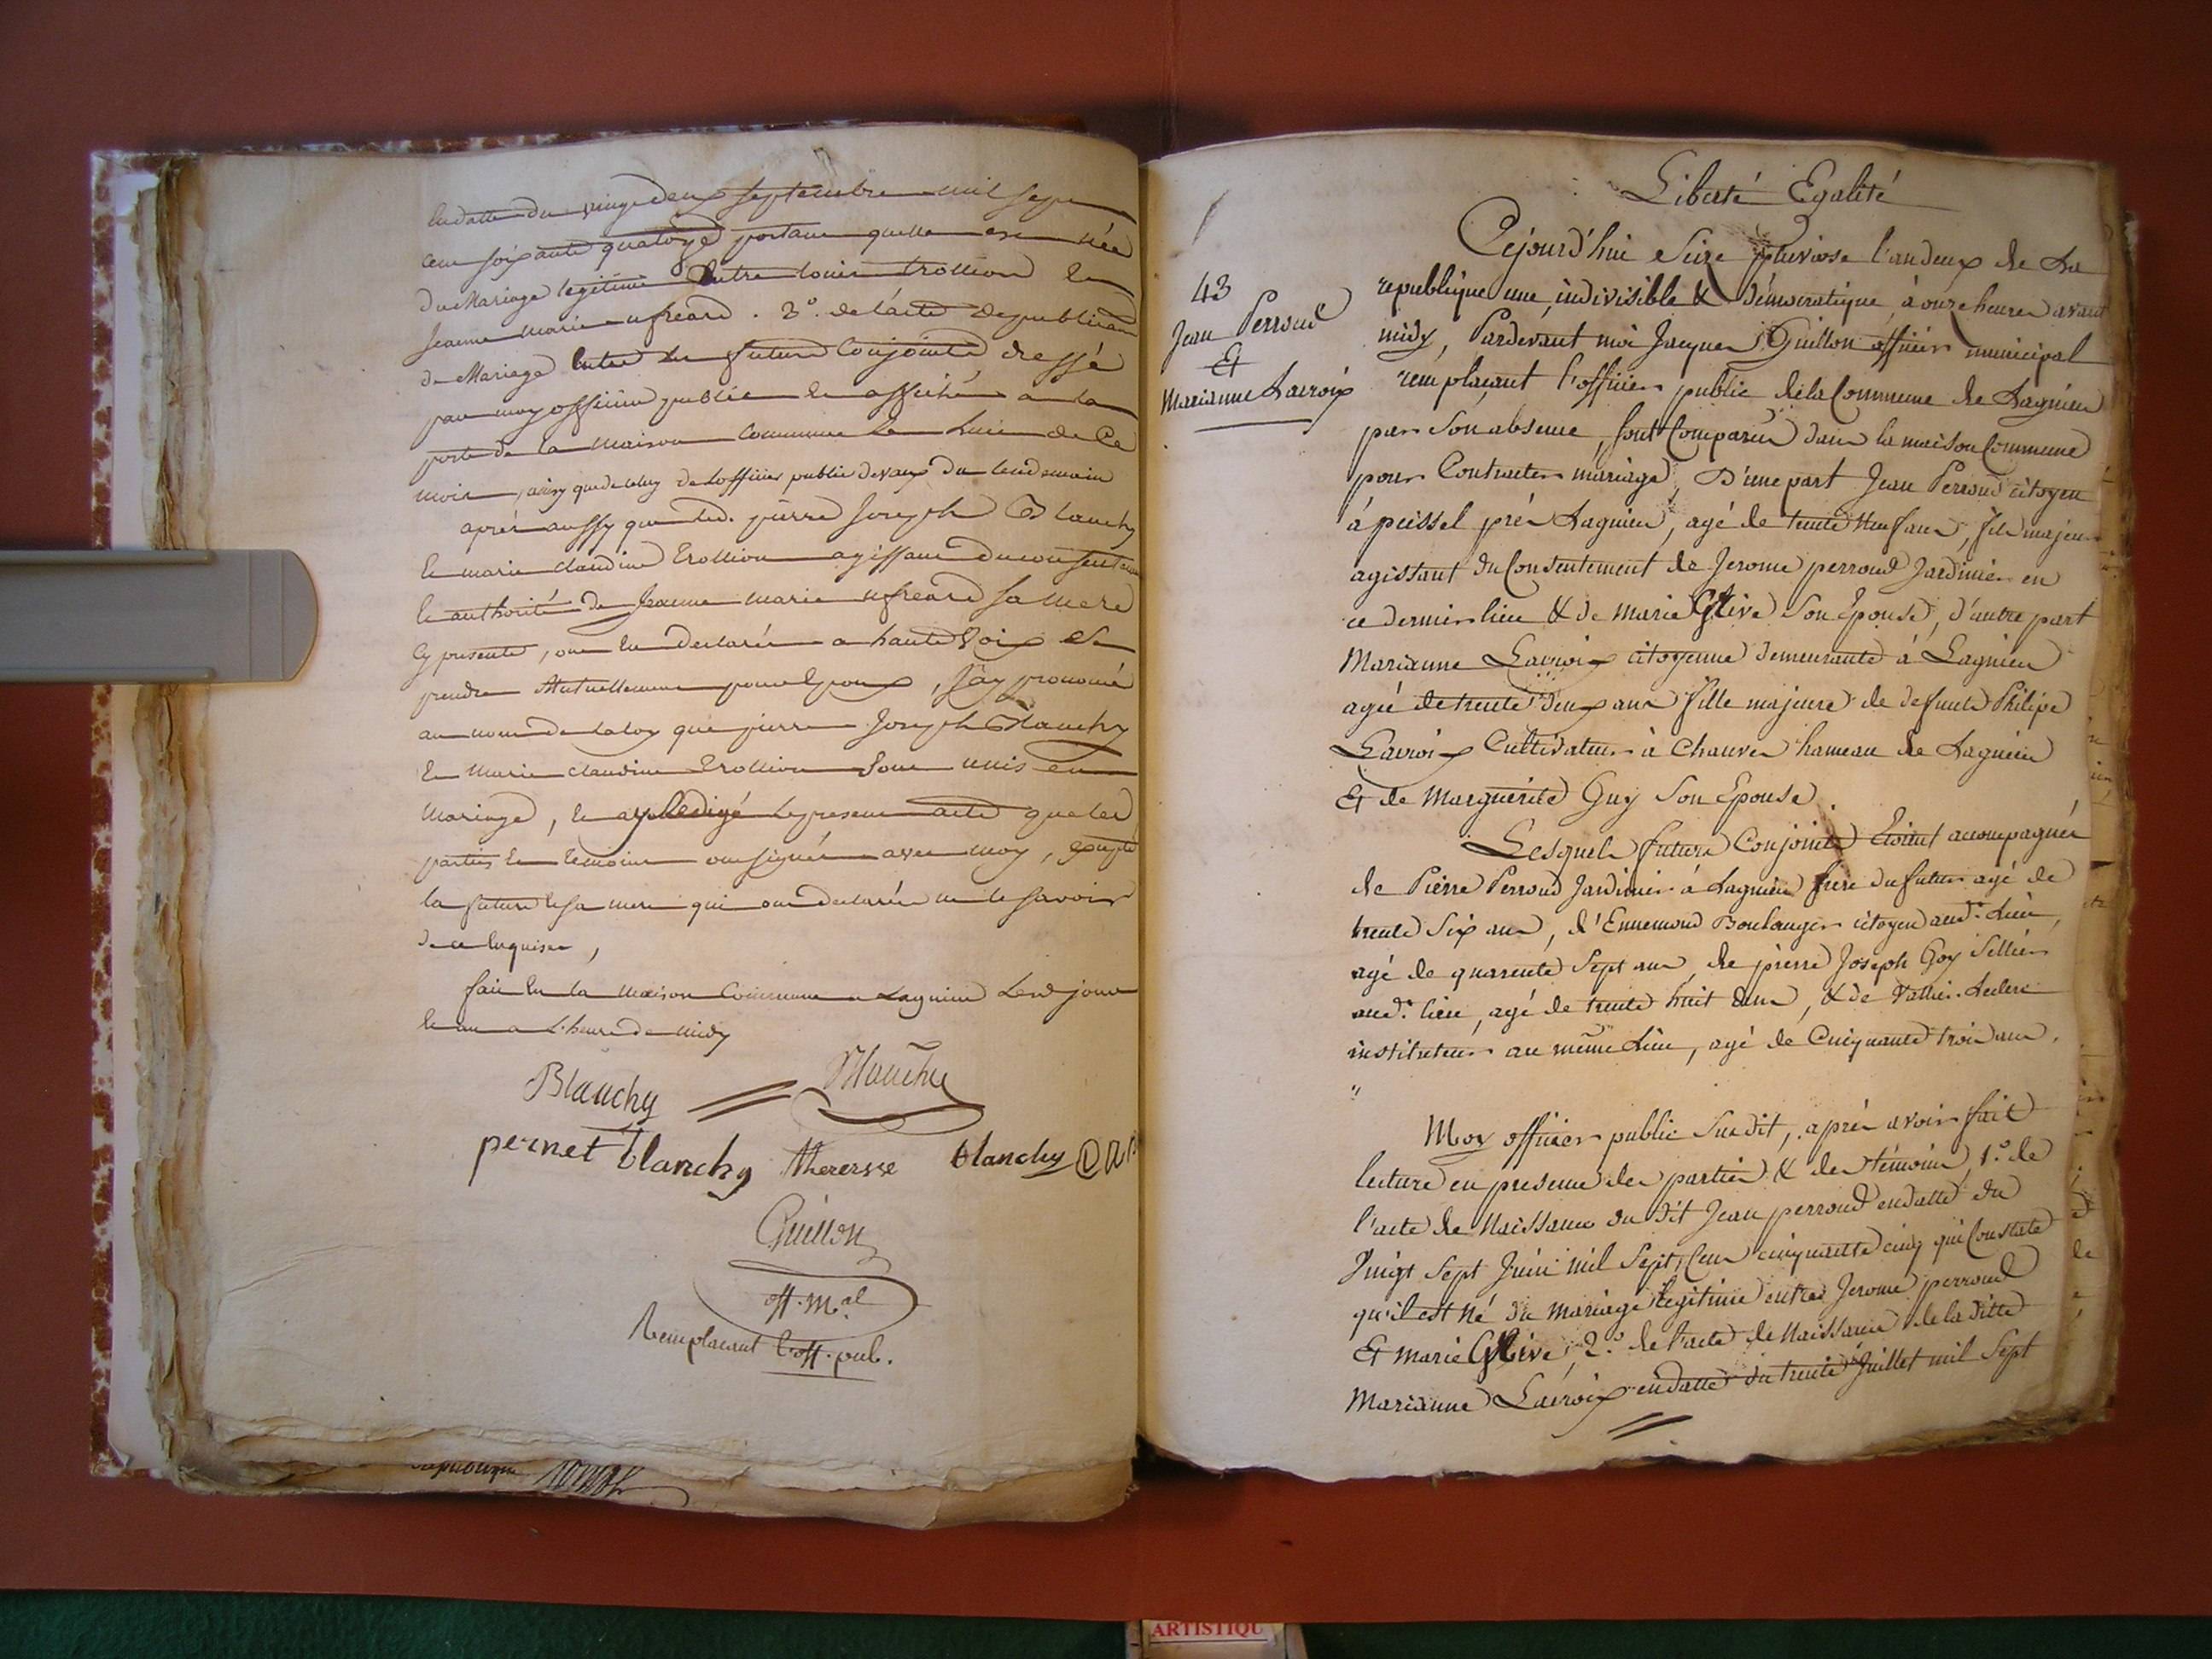 en datte du vingt deux septembre mil sept
cent soixante quatorze portant quelle est née
du Mariage legitime Entre Louis trollion et
Jeanne Marie . 3°. de l'acte de publication
de Mariage Entre les futurs Conjoints dressé
par moy officier public et affiché a la
porte de la Maison Commune le huit de Ce
mois, ainsy que de celuy de Lofficier public devaux du lendemain
après aussy que led. pierre Joseph Blanchy
et marie claudine trollion agissant du consentement
et authorité de Jeanne Marie sa Mere
Cy presente, ont en declarée a haute Voix Se
prendre Mutuellement pour Epoux, J'ay prononcé
au nom de la loy que pierre Joseph Blanchy
et Marie claudine trollion Sont unis en
Mariage, et ay Redigé le present acte que les
parties et temoins ont signés avec moy, excepté
la future et sa mere qui ont declarée ne le savoir
de ce Enquises,
fait En la Maison Commune a Lagnieu Lesd jour
et an a L'heure de midy
Blanchy Blanchy
pernet blanchy therersse blanchy
Guillon
off. M.al
Remplacant l'off. pub.
republique
Liberté Egalité
43
Jean Perroud
Et
Marianne Lacroix
Cejourd'hui Seize pluviose l'an deux de La
republique une, indivisible & démocratique, à onze heures avant
midy, Pardevant moi Jacques Guillon officier municipal
remplaçant l'officier public de la Commune de Lagnieu
par Son absence, sont Comparus dans la maison Commune
pour Contracter mariage, D'une part Jean Perroud citoyen
à près Lagnieu, agé de trente Neuf ans, fils majeur
agissant du Consentement de Jerome perroud Jardinier en
ce dernier lieu & de marie Son Epouse, d'autre part
Marianne Lacroix citoyenne demeurante à Lagnieu
agée de trente deux ans fille majeure de defunts Philipe
Lacroix Cultivateur à Chauves hameau de Lagnieu
Et de Marguerite Guy Son Epouse.
Lesquels futurs Conjoints Etoient accompagnés
de Pierre Perroud Jardinier à Lagnieu frere du futur agé de
trente Six ans, d'Ennemond Boulanger citoyen aud.t Lieu,
agé de quarente Sept ans, de pierre Joseph Goy Sellier
aud.t lieu, agé de trente huit ans, & de Leclerc
instituteur au même Lieu, agé de Cinquante trois ans.
"
Moy officier public Susdit, après avoir fait
lecture en presence des parties & des témoins, 1.° de
l'acte de Naissance du dit Jean perroud endatte du
Vingt Sept Juin mil Sept Cent cinquante cinq qui Constate
qu'il est né du mariage legitime entre Jerome perroud
Et marie, 2.° de l'acte de Naissance de la ditte
Marianne Lacroix endatte du trente Juillet mil Sept
ARTISTIQU